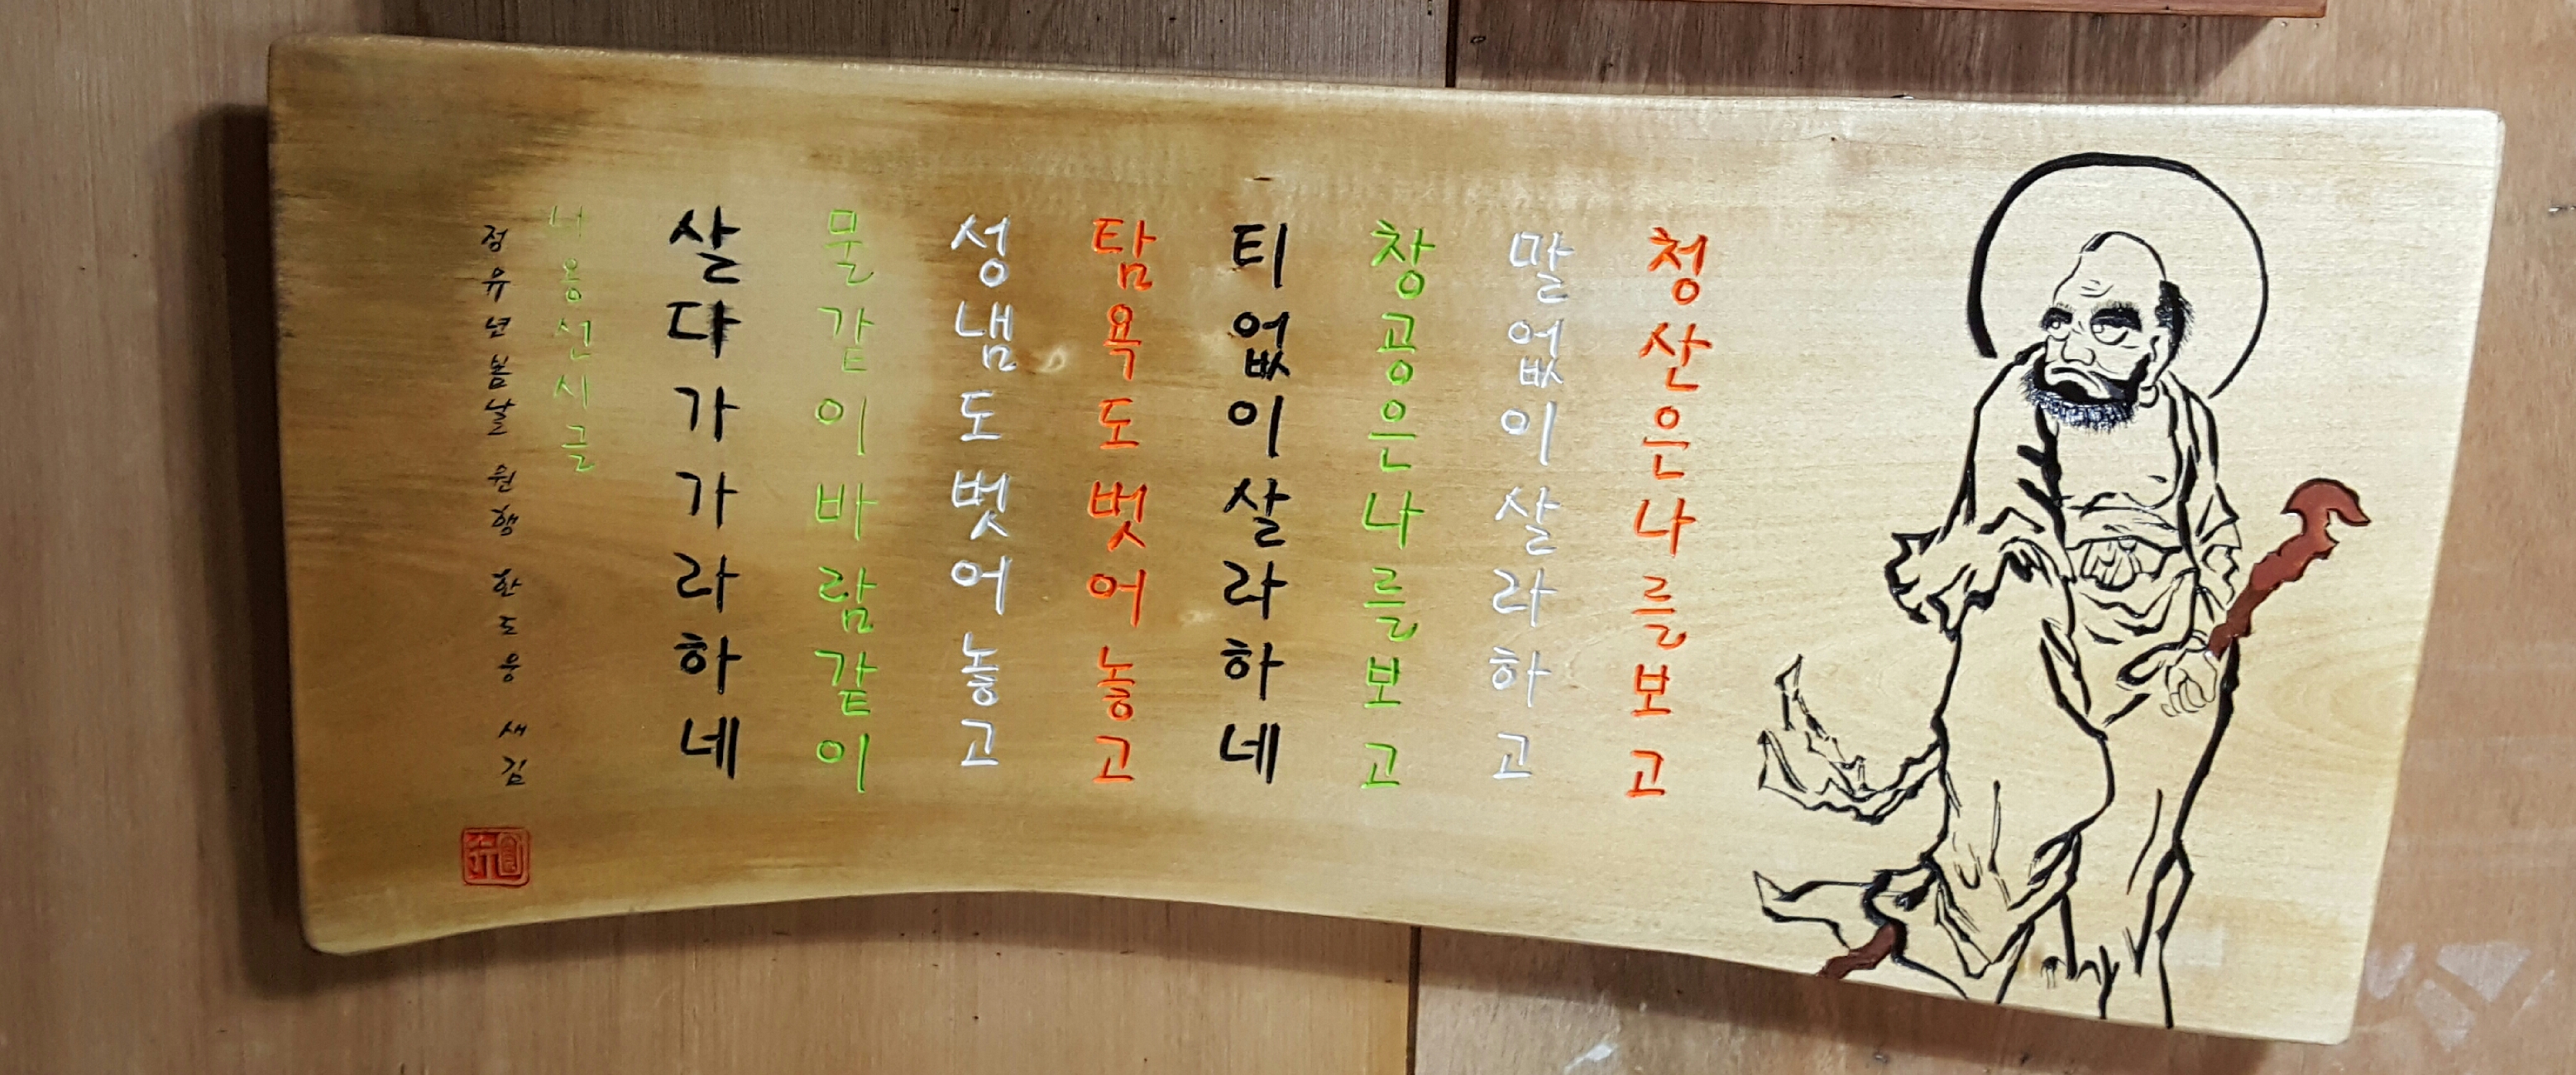 청산은나를보고
말없이살라하고
창공은나를보고
티없이살라하네
탐욕도벗어놓고
성냄도벗어놓고
물같이바람같이
살다가가라하네
나옹선시글
정유년봄날 원행 한도웅 새김